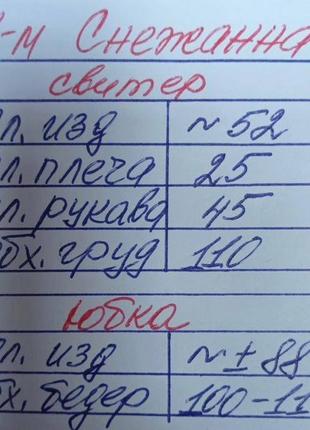 -м Снежанна
свитер
л. изд ~ 52
л. плеча 25
л. рукава 45
бх. груд 110
юбка
л. изд ~ ± 88
х. бедер 100-11